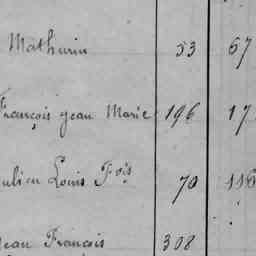 Mathurin 53 67
François Jean Marie 196 17
ulien Louis Fois 70 116
Jean François 308